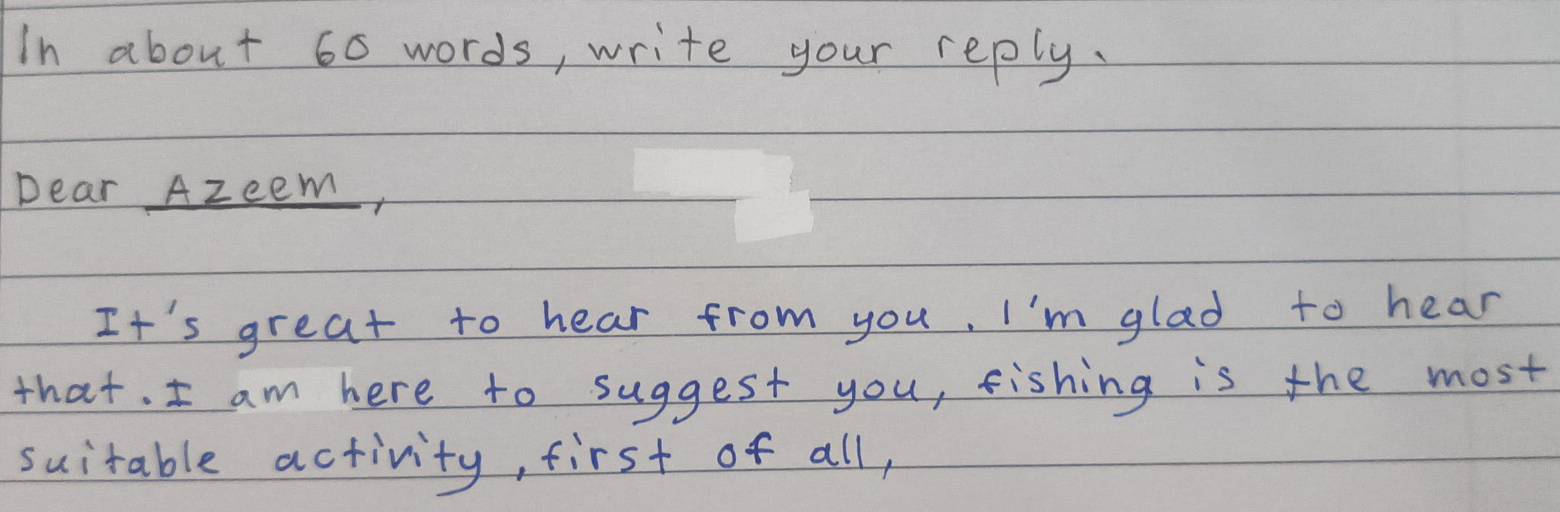 In about 60 words, write your reply.
Dear Azeem,
It's great to hear from you. I'm glad to hear
that. I am here to suggest you, fishing is the most
suitable activity, first of all,